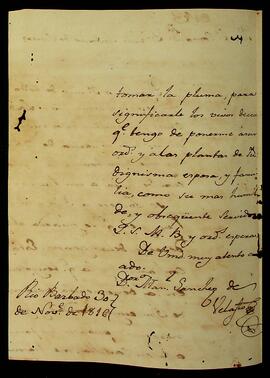 tomar la pluma, para
significarle los vivos deceos
qe. tengo de ponerme á sus
ords. y a las plantas de su
dignisima esposa, y fami-
lia, como su mas humil
de, y obsequente servidor
Q. S. M. B. y ords. espera
De Vmd. muy atento cri-
ado.
Dn. Man. Sanchez de
Velas
Rio Barbado 30
de Nove. de 1816